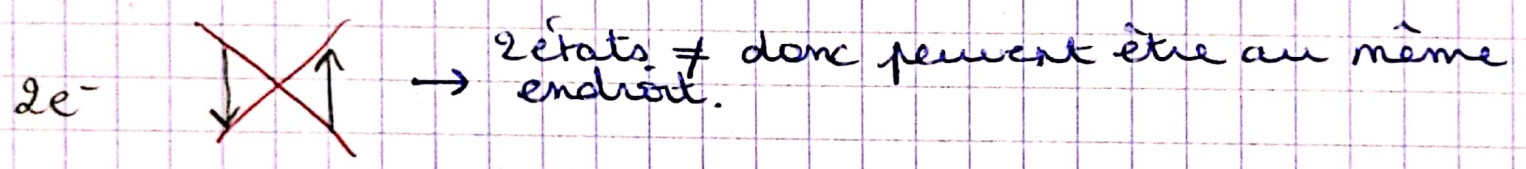 2e⁻ ↓ ↑ → 2 états ≠ donc peuvent être au même
endroit.